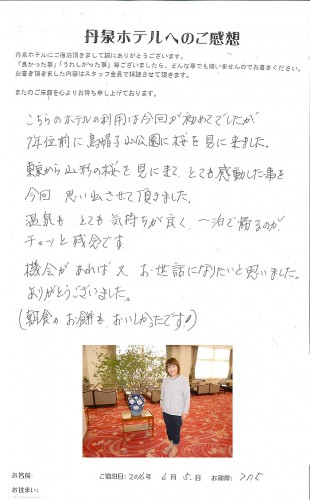 丹泉ホテルへのご感想
丹泉ホテルにご宿泊頂きまして誠にありがとうございます。
「良かった事」「うれしかった事」等ございましたら、どんな事でも構いませんのでお書きください。
お書き頂きました内容はスタッフ全員で拝読させて頂きます。
またのご来館を心よりお待ち申し上げております。
こちらのホテルの利用は今回が初めてでしたが
7年位前に烏帽子山公園に桜を見に来ました。
東京から山形の桜を見に来て、とても感動した事を
今回 思い出させて頂きました。
温泉も とても気持ちが良く、一泊で帰るのが
チョッと残念です
機会があれば又 お世話になりたいと思いました。
ありがとうございました。
(朝食の お餅も おいしかったです!)
お名前:
ご宿泊日:2016年 6月 5日 お部屋:
お住まい: